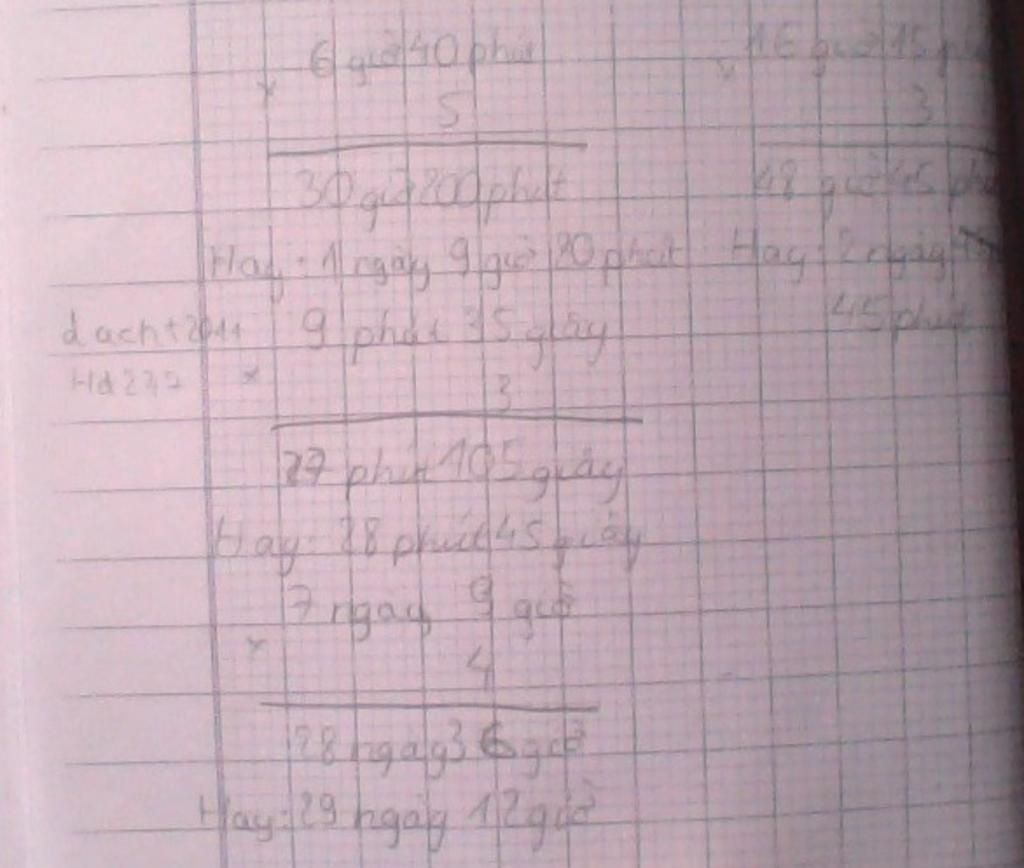 6 giờ 40 phút
×
5
30 giờ 200 phút
Hay: 1 ngày 9 giờ 20 phút
16 giờ 15
×
3
48 giờ 45
Hay: 2 ngày
45 phút
9 phút 35 giây
×
3
27 phút 105 giây
Hay: 28 phút 45 giây
7 ngày 9 giờ
×
4
28 ngày 36 giờ
Hay: 29 ngày 12 giờ